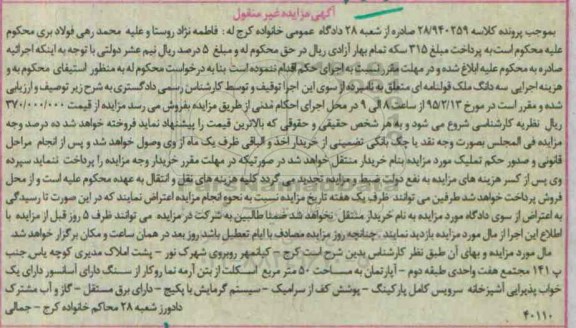 آگهی مزایده غیر منقول
بموجب پرونده کلاسه ۲۸/۹۴۰۲۵۹ صادره از شعبه ۲۸ دادگاه عمومی خانواده کرج له : فاطمه نژاد روستا و علیه محمد رهی فولاد بری محکوم
علیه محکوم است به پرداخت مبلغ ۳۱۵ سکه تمام بهار آزادی ریال در حق محکوم له و مبلغ ۵ درصد ریال نیم عشر دولتی با توجه به اینکه اجرائیه
صادره به محکوم علیه ابلاغ شده و در مهلت مقرر نسبت به اجرای حکم اقدام ننموده است بنا به درخواست محکوم له به منظور استیفای محکوم به و
هزینه اجرایی سه دانگ ملک قولنامه ای متعلق به نامبرده از سوی این اجرا توقیف و توسط کارشناس رسمی دادگستری به شرح زیر توصیف و ارزیابی
شده و مقرر است در مورخ ۹۵/۲/۱۳ از ساعت ۸ الی ۹ در محل اجرای احکام مدنی از طریق مزایده بفروش می رسد مزایده از قیمت ۳۷۰/۰۰۰/۰۰۰
ریال نظریه کارشناسی شروع می شود و به هر شخص حقیقی و حقوقی که بالاترین قیمت را پیشنهاد نماید فروخته خواهد شد ده درصد وجه
مزایده فی المجلس بصورت وجه نقد یا چک بانکی تضمینی از خریدار اخذ و الباقی ظرف یک ماه از وی وصول خواهد شد و پس از انجام مراحل
قانونی و صدور حکم تملیک مورد مزایده بنام خریدار منتقل خواهد شد در صورتیکه در مهلت مقرر خریدار وجه مزایده را پرداخت ننماید سپرده
وی پس از کسر هزینه های مزایده به نفع دولت ضبط و مزایده تجدید می گردد کلیه هزینه های نقل و انتقال به عهده محکوم علیه است و از محل
فروش پرداخت خواهد شد طرفین می توانند ظرف یک هفته تاریخ مزایده نسبت به نحوه انجام مزایده اعتراض نمایند که در این صورت تا رسیدگی
به اعتراض از سوی دادگاه مورد مزایده به نام خریدار منتقل نخواهد شد ضمنا طالبین به شرکت در مزایده می توانند ظرف ۵ روز قبل از مزایده با
اطلاع این اجرا از مال مورد مزایده بازدید نمایند چنانچه روز مزایده مصادف با ایام تعطیل باشد روز بعد در همان ساعت و مکان برگزار خواهد شد.
مال مورد مزایده و بهای آن طبق نظر کارشناس بدین شرح است کرج – کیانمهر روبروی شهرک نور – پشت املاک مدیری کوچه یاس جنب
پ ۱۴۱ مجتمع هفت واحدی طبقه دوم – آپارتمان به مساحت ۵۰ متر مربع اسکلت از بتن آرمه نما روکار از سنگ دارای آسانسور دارای یک
خواب پذیرایی آشپزخانه سرویس کامل پارکینگ – پوشش کف از سرامیک – سیستم گرمایش با پکیج – دارای برق مستقل – گاز و آب مشترک
۴۰۱۱۰ دادورز شعبه ۲۸ محاکم خانواده کرج – جمالی